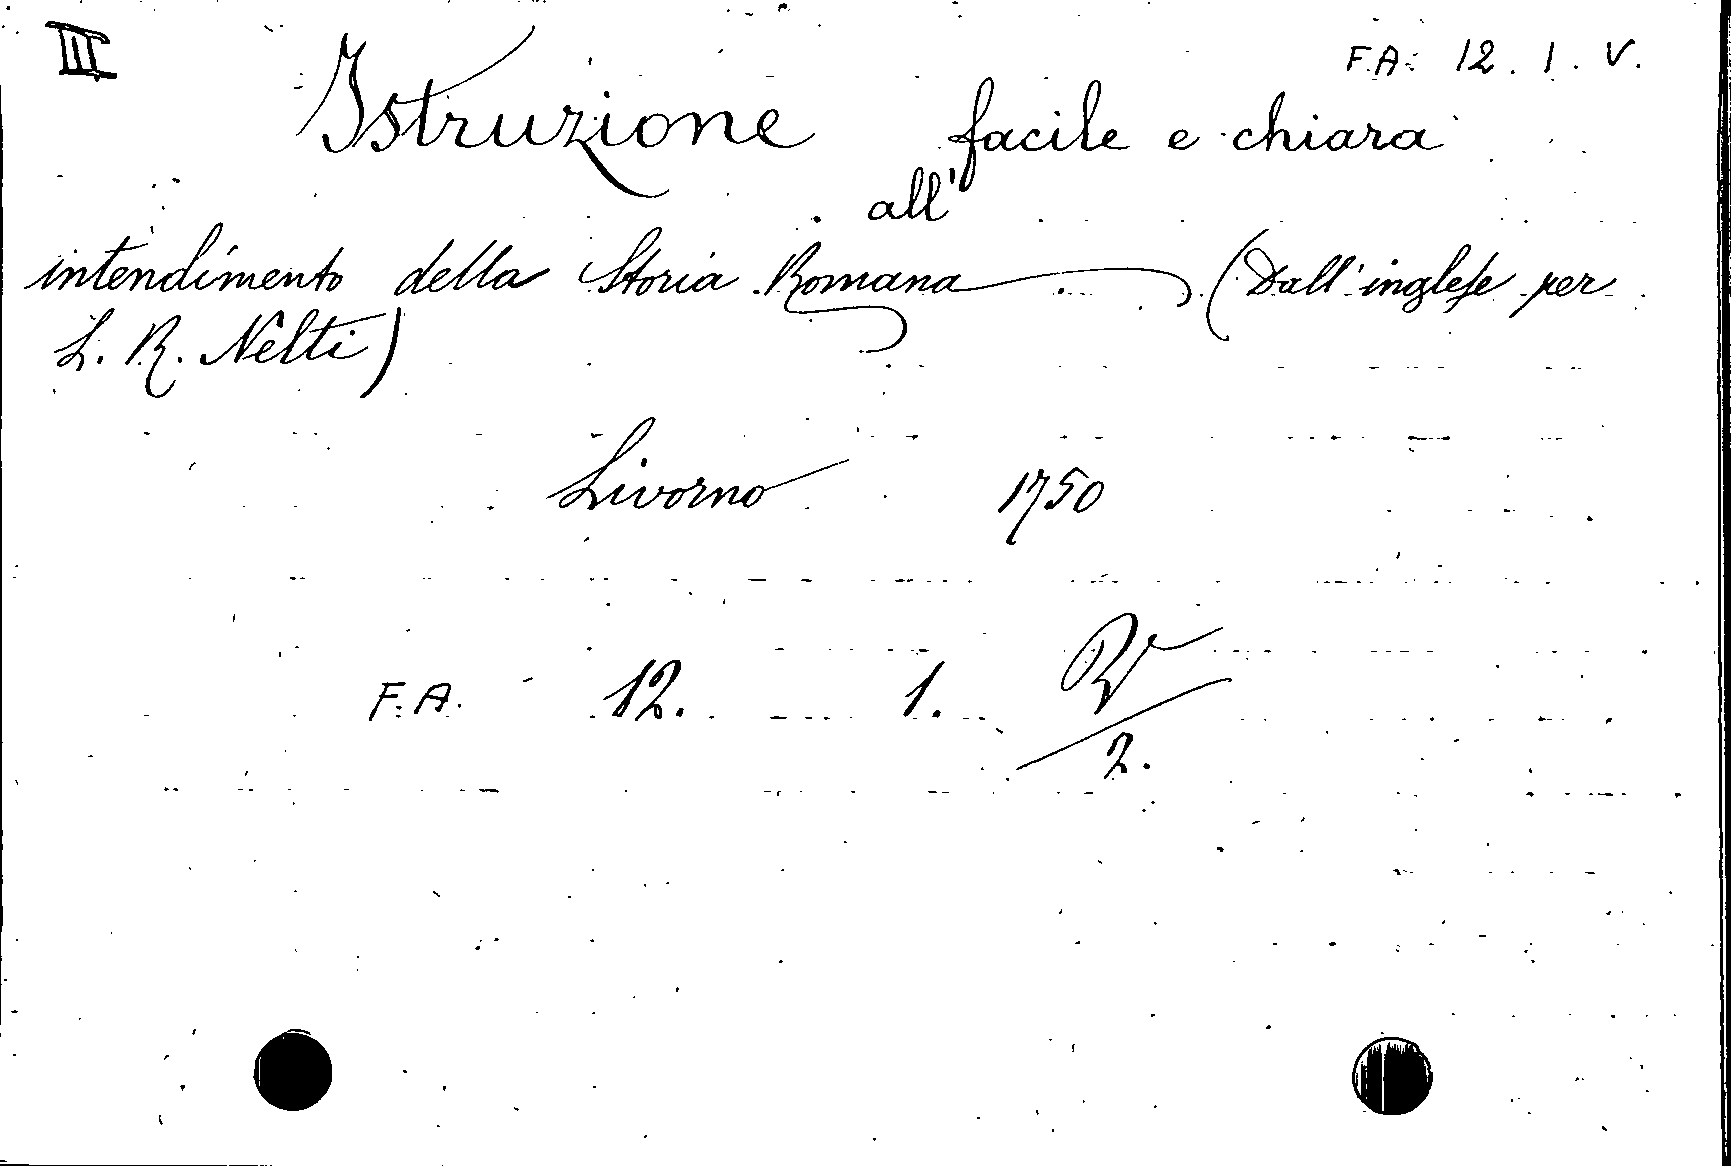 III
F.A. 12. 1. V.
Istruzione facile e chiara
all'
intendimento della Storia Romana (Dall'inglese per
L. R. Nelti)
Livorno 1750
F.A. 12. 1.
2.